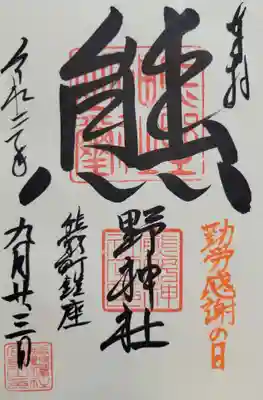 奉拝
勤労感謝の日
熊
野神社
熊野町鎮座
令和二年
月廿三日